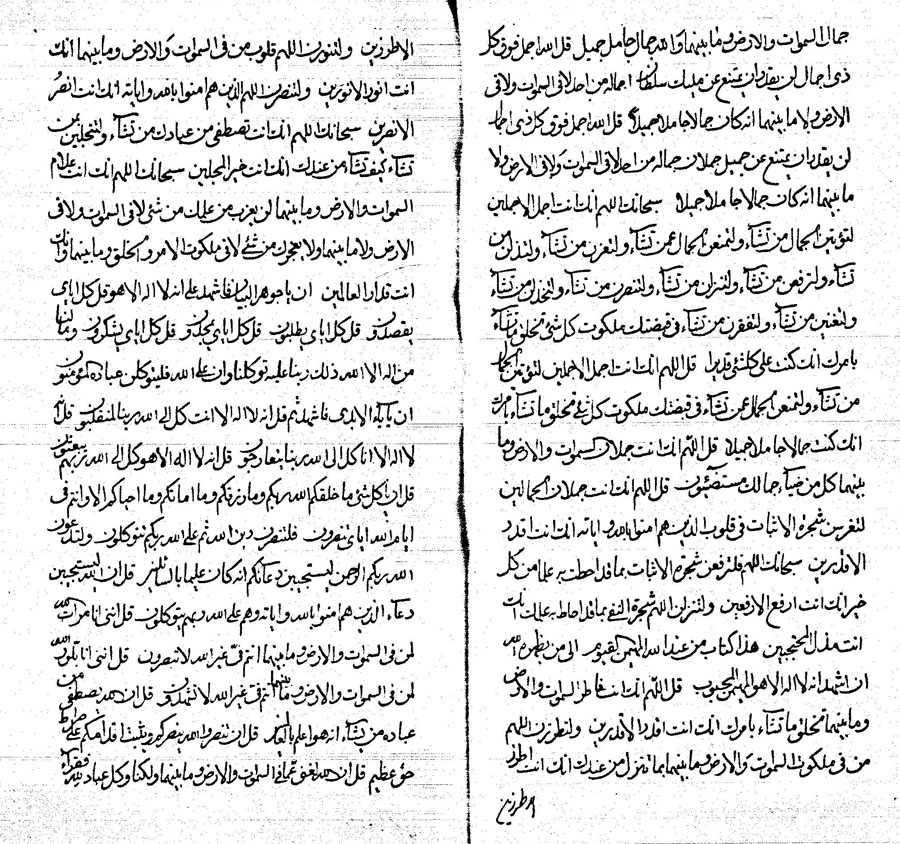 جمال السموات والارض وما بينهما والله جمال جامل جميل قل الله اجمل فوق كل
ذى اجمال لن يقدر ان يمتنع عن مليك سلطان اجماله من احد لا فى السموات ولا فى
الارض ولا ما بينهما انه كان جمالا جاملا جميلا قل الله اجمل فوق كل ذى اجمال
لن يقدر ان يمتنع عن جميل جملان جماله من احد لا فى السموات ولا فى الارض ولا
ما بينهما انه كان جمالا جاملا جميلا سبحانك اللهم انك انت اجمل الاجملين
لتؤتين الجمال من تشآء ولتمنعن الجمال عمن تشآء ولتعزن من تشآء ولتذلن من
تشآء ولترفعن من تشآء ولتنزلن من تشآء ولتنصرن من تشآء ولتخذلن من تشآء
ولتغنين من تشآء ولتفقرن من تشآء فى قبضتك ملكوت كل شئ تخلق ما تشآء
بامرك انك كنت على كلشئ قديرا قل اللهم انك انت اجمل الاجملين لتؤتين الجمال
من تشآء ولتمنعن الجمال عمن تشآء فى قبضتك ملكوت كل شئ تخلق ما تشآء بامرك
انك كنت جمالا جاملا جميلا قل اللهم انك انت جملان السموات والارض وما
بينهما كل من ضيآء جمالك مستضيئون قل اللهم انك انت جملان الجمالين
لتغرسن شجرة الاثبات فى قلوب الذين هم امنوا بالله واياته انك انت اقدر
الاقدرين سبحانك اللهم فلترفعن شجرة الاثبات بما قد احطت به علما من كل
خير انك انت ارفع الارفعين ولتنزلن اللهم شجرة النفى بما قد احاط به علمك انك
انت مذل المحتجبين هذا كتاب من عند الله المهيمن القيوم الى من يظهره الله
ان اشهد انه لا اله الا هو المهيمن المحبوب قل اللهم انك انت فاطر السموات والارض
وما بينهما تخلق ما تشآء بامرك انك انت اقدر الاقدرين ولتطرزن اللهم
من فى ملكوت السموات والارض وما بينهما بما تنزل من عندك انك انت اطرز
الاطرزين
الاطرزين ولتنورن اللهم قلوب من فى السموات والارض وما بينهما انك
انت انور الانورين ولتنصرن اللهم الذين هم امنوا بالله واياته انك انت انصر
الانصرين سبحانك اللهم انك انت تصطفى من عبادك من تشآء ولتجلين بمن
تشآء كيف تشآء من عندك انك انت خير المجلين سبحانك اللهم انك انت علام
السموات والارض وما بينهما لن يعزب من علمك من شئ لا فى السموات ولا فى
الارض ولا ما بينهما ولا يعجزك من شئ لا فى ملكوت الامر والخلق وما بينهما وانك
انت قدار العالمين ان يا جوهر البيان فاشهد على انه لا اله الا هو قل كل اياى
يقصدون قل كل اياى يطلبون قل كل اياى يمجدون قل كل اياى يشكرون وما لنا
من اله الا الله ذلك ربنا عليه توكلنا وان على الله فليتوكلن عباده المؤمنون
ان يا بآء الابدى فاشهد ثم قل انه لا اله الا انت كل الى الله ربنا لمنقلبون قل انه
لا اله الا انا كل الى الله ربنا يتعارجون قل انه لا اله الا هو كل الى الله ربهم يبعثون
قل ان كل شئ ما خلقكم الله ربكم وما رزقكم وما اماتكم وما احياكم الا وانتم فى
ايام الله اياى تنصرون فلتنصرن دين الله ثم على الله ربكم تتوكلون ولتدعون
الله ربكم الرحمن ليستجيبن دعآئكم انه كان عليما بالعالمين قل ان الله ليستجيبن
دعآء الذين هم امنوا بالله واياته وهم على الله ربهم يتوكلون قل اننى انا مرآت الله
لمن فى السموات والارض وما بينهما انتم فى غير الله لا تبصرون قل اننى انا بلور الله
لمن فى السموات والارض وما بينهما انتم فى غير الله لا تشهدون قل ان الله يصطفى من
عباده من يشآء انه هو اعلم بالعالمين قل ان تنصروا الله ينصركم ويثبت اقدامكم على صراط
حق عظيم قل ان الله لغنى عما فى السموات والارض وما بينهما ولكنا وكل عباد لله فقرآء